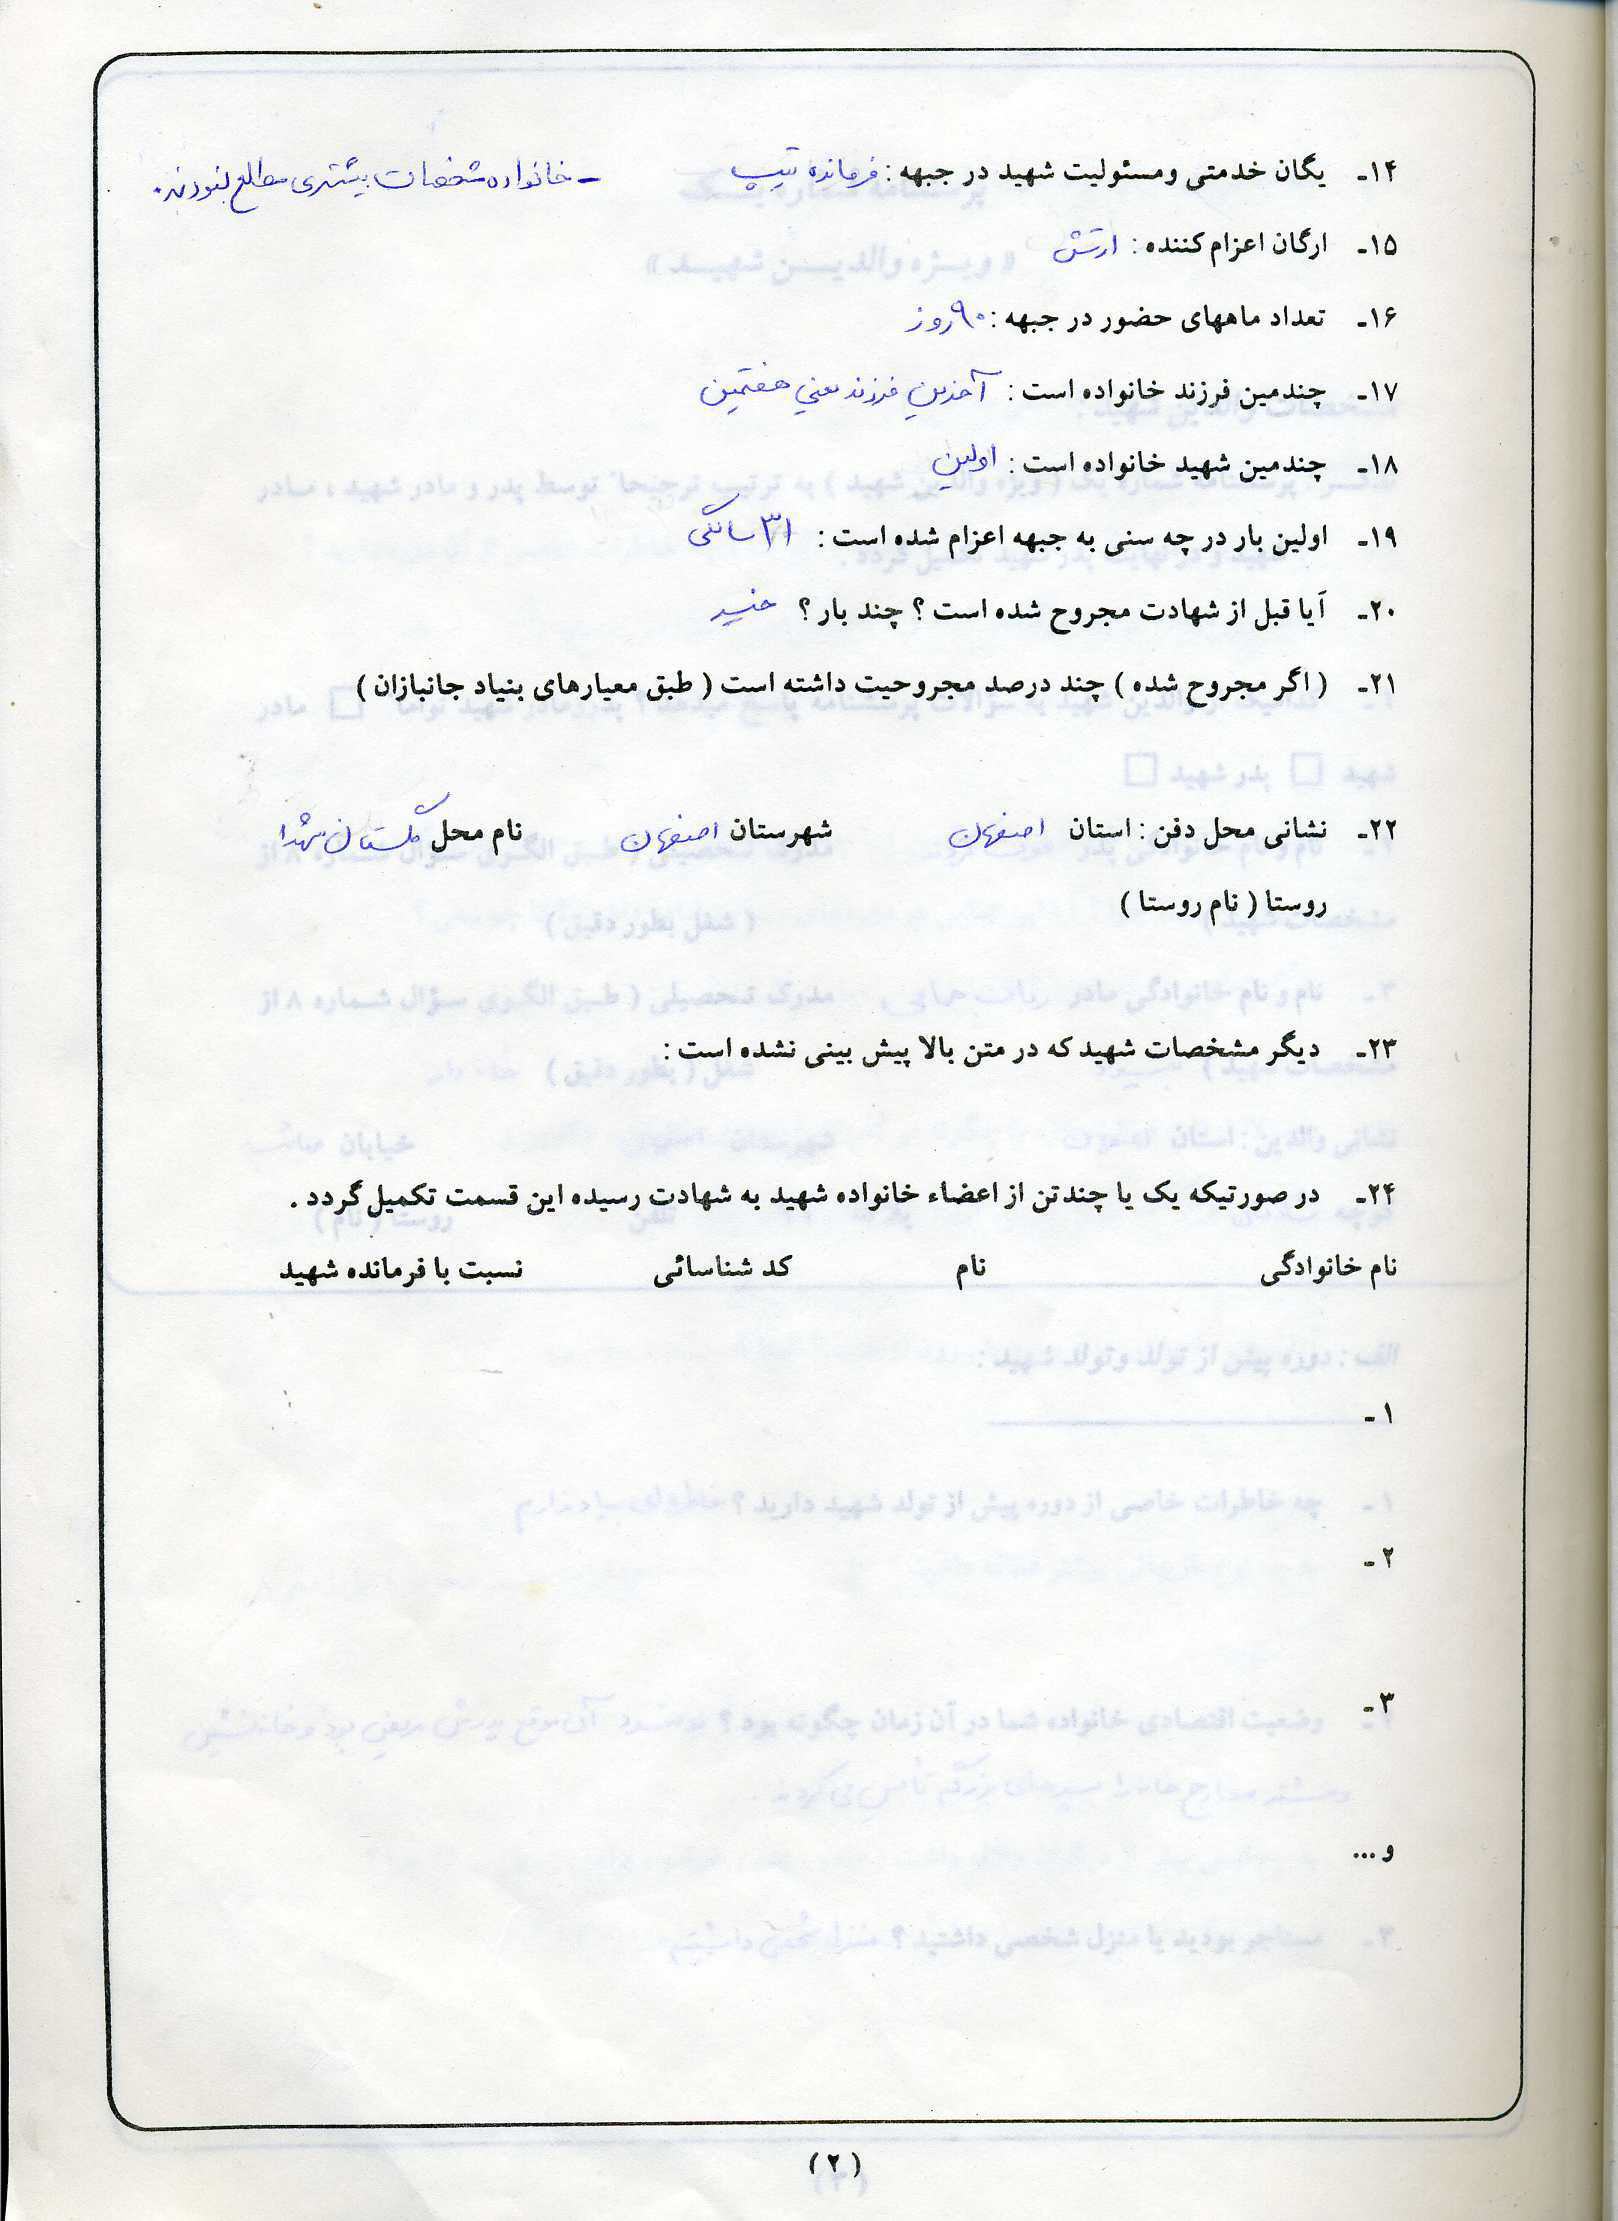 ۱۴- یگان خدمتی ومسئولیت شهید در جبهه : فرمانده تیپ - خانواده مشخصات بیشتری مطلع نبودند.
۱۵- ارگان اعزام کننده : ارتش
۱۶- تعداد ماههای حضور در جبهه : ۹۰ روز
۱۷- چندمین فرزند خانواده است : آخرین فرزند یعنی هفتمین
۱۸- چندمین شهید خانواده است : اولین
۱۹- اولین بار در چه سنی به جبهه اعزام شده است : ۳۱ سالگی
۲۰- آیا قبل از شهادت مجروح شده است ؟ چند بار ؟ خیر
۲۱- ( اگر مجروح شده ) چند درصد مجروحیت داشته است ( طبق معیارهای بنیاد جانبازان )
۲۲- نشانی محل دفن : استان اصفهان شهرستان اصفهان نام محل گلستان شهدا
روستا ( نام روستا )
۲۳- دیگر مشخصات شهید که در متن بالا پیش بینی نشده است :
۲۴- در صورتیکه یک یا چندتن از اعضاء خانواده شهید به شهادت رسیده این قسمت تکمیل گردد .
نام خانوادگی نام کد شناسائی نسبت با فرمانده شهید
۱-
۲-
۳-
و ...
( ۲ )